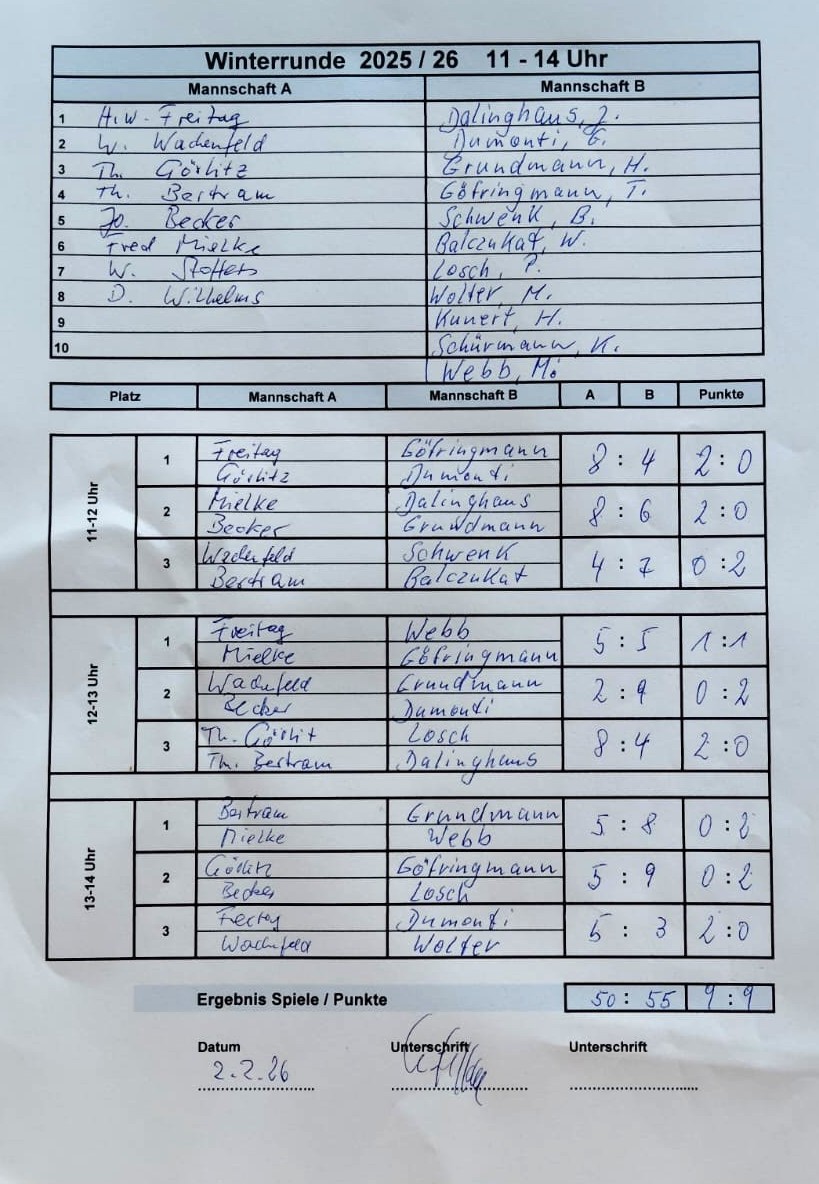 Winterrunde 2025 / 26 11 - 14 Uhr
Mannschaft A Mannschaft B
1 H.W. Freitag Dalinghaus, J.
2 W. Wachenfeld Dumonti, G.
3 Th. Görlitz Grundmann, H.
4 Th. Bertram Göfringmann, T.
5 Jo. Becker Schwenk, B.
6 Fred Mielke Balczukat, W.
7 W. Stoffers Losch, P.
8 D. Wilhelms Wolter, M.
9 Kunert, H.
10 Schürmann, K.
Webb, M.
Platz Mannschaft A Mannschaft B A B Punkte
11-12 Uhr
1 Freitag Göfringmann 8 : 4 2 : 0
Görlitz Dumonti
2 Mielke Dalinghaus 8 : 6 2 : 0
Becker Grundmann
3 Wachenfeld Schwenk 4 : 7 0 : 2
Bertram Balczukat
12-13 Uhr
1 Freitag Webb 5 : 5 1 : 1
Mielke Göfringmann
2 Wachenfeld Grundmann 2 : 9 0 : 2
Becker Dumonti
3 Th. Görlit Losch 8 : 4 2 : 0
Th. Bertram Dalinghaus
13-14 Uhr
1 Bertram Grundmann 5 : 8 0 : 2
Mielke Webb
2 Görlitz Göfringmann 5 : 9 0 : 2
Becker Losch
3 Freitag Dumonti 5 : 3 2 : 0
Wachenfeld Wolter
Ergebnis Spiele / Punkte 50 : 55 9 : 9
Datum Unterschrift Unterschrift
2.2.26